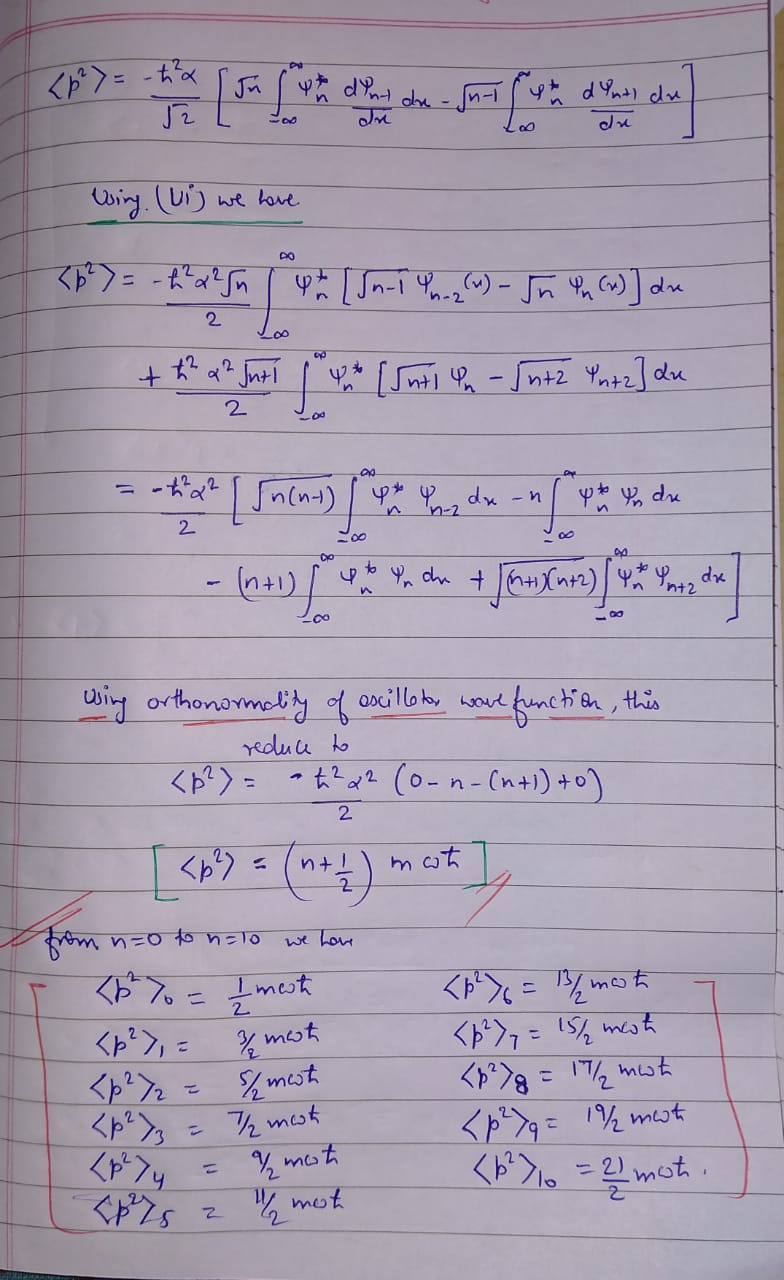 <p²> = -ħ²α/√2 [√n ∫_{-∞}^{∞} ψ*_n dψ_{n-1}/dx dx - √n-1 ∫_{-∞}^{∞} ψ*_n dψ_{n+1}/dx dx]
Using (vi) we have
<p²> = -ħ²α²√n/2 ∫_{-∞}^{∞} ψ*_n [√n-1 ψ_{n-2}(x) - √n ψ_n(x)] dx
+ ħ²α²√n+1/2 ∫_{-∞}^{∞} ψ_n* [√n+1 ψ_n - √n+2 ψ_{n+2}] dx
= -ħ²α²/2 [√n(n-1) ∫_{-∞}^{∞} ψ*_n ψ_{n-2} dx - n ∫_{-∞}^{∞} ψ*_n ψ_n dx
- (n+1) ∫_{-∞}^{∞} ψ*_n ψ_n dx + √(n+1)(n+2) ∫_{-∞}^{∞} ψ*_n ψ_{n+2} dx]
Using orthonormality of oscillator wave function, this
reduce to
<p²> = -ħ²α²/2 (0-n-(n+1)+0)
[<p²> = (n+1/2) mωħ]
from n=0 to n=10 we have
<p²>₀ = 1/2 mωħ
<p²>₁ = 3/2 mωħ
<p²>₂ = 5/2 mωħ
<p²>₃ = 7/2 mωħ
<p²>₄ = 9/2 mωħ
<p²>₅ = 11/2 mωħ
<p²>₆ = 13/2 mωħ
<p²>₇ = 15/2 mωħ
<p²>₈ = 17/2 mωħ
<p²>₉ = 19/2 mωħ
<p²>₁₀ = 21/2 mωħ.